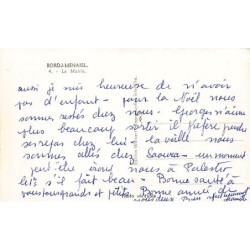 BORDJ-MENAIEL.
4. - La Mairie.
aussi je suis heureuse de n'avoir
pas d'enfant - pour la Noël nous
sommes restés chez nous. Georges n'aime
plus beaucoup sortir il préfère prendre
ses repas chez lui - la veille nous
sommes allés chez Saoura - un moment
peut-être irons nous à Palestro
le 1er s'il fait beau - Bonne santé à
vous tous grands et petits. Bonne année